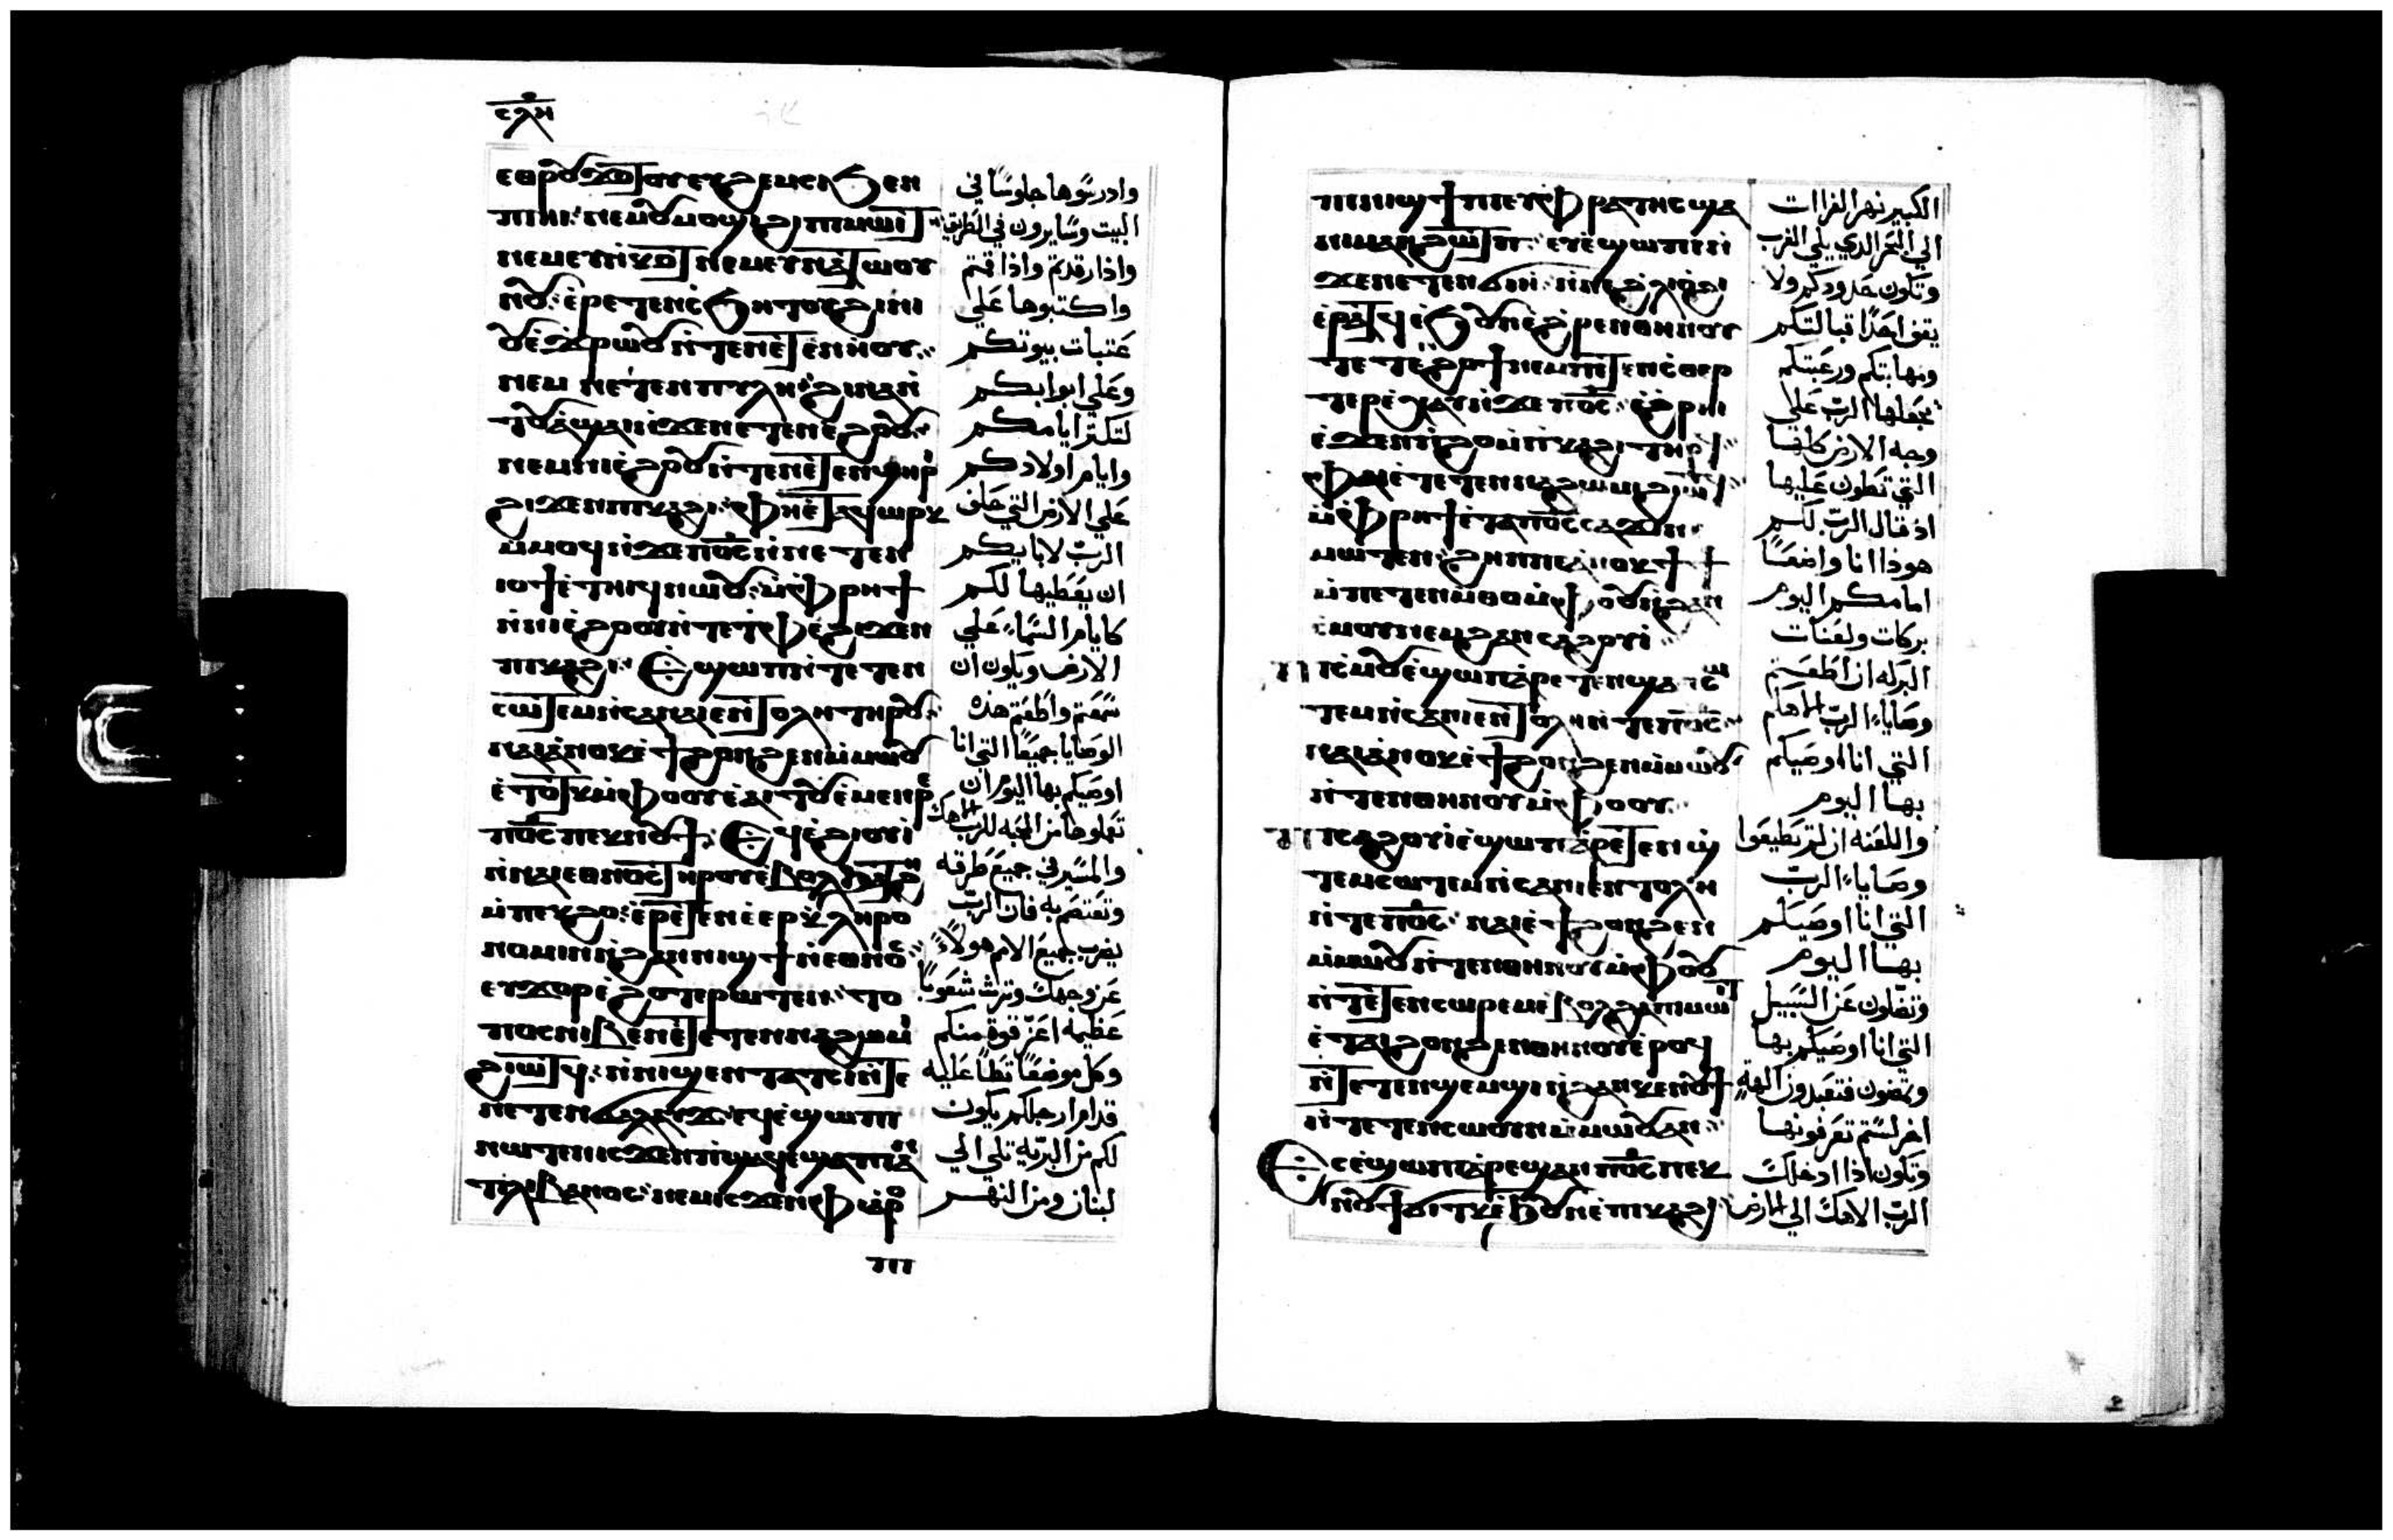 ⲥⲗⲏ
ⲉⲑⲣⲟⲩϫⲟⲧⲟⲩ ⲉⲩϩⲉⲙⲥⲓ ϧⲉⲛ
ⲡⲓⲏⲓ ⲛⲉⲙ ⲟⲩⲙⲟϣⲓ ϩⲓ ⲡⲓⲙⲱⲓⲧ
ⲛⲉⲙ ⲉⲩⲛⲕⲟⲧ ⲛⲉⲙ ⲉⲩⲛⲁⲧⲱⲟⲩ
ⲛⲟⲩ ⲉⲣⲉⲧⲉⲛⲉⲥϧⲏⲧⲟⲩ ϩⲓ ⲛⲓ
ⲟⲩⲉϫⲣⲱⲟⲩ ⲛⲧⲉ ⲛⲉⲧⲉⲛⲏⲟⲩ
ⲛⲉⲙ ⲛⲉⲧⲉⲛⲡⲩⲗⲏ ϩⲓⲛⲁ ⲛ
ⲧⲟⲩⲁϣⲁⲓ ⲛϫⲉ ⲛⲉⲧⲉⲛⲉϩⲟⲟⲩ
ⲛⲉⲙ ⲛⲓⲉϩⲟⲟⲩ ⲛⲧⲉ ⲛⲉⲧⲉⲛϣⲏⲣⲓ
ϩⲓϫⲉⲛ ⲡⲓⲕⲁϩⲓ ⲫⲏⲉⲧⲁϥⲱⲣⲕ
ⲙⲙⲟϥ ⲛϫⲉ ⲡⲟⲥ ⲛⲛⲉⲧⲉⲛ
ⲓⲟϯ ⲉⲧⲏⲓϥ ⲛⲱⲟⲩ ⲙⲫⲣⲏϯ
ⲛⲛⲓⲉϩⲟⲟⲩ ⲛⲧⲉ ⲧⲫⲉ ϩⲓϫⲉⲛ
ⲡⲓⲕⲁϩⲓ ⲉϣⲱⲡ ⲧⲉⲧⲉⲛ
ⲥⲱⲧⲉⲙ ⲛⲥⲁ ⲛⲁⲓⲉⲛⲧⲟⲗⲏ ⲧⲏⲣⲟⲩ
ⲛⲁⲓ ⲁⲛⲟⲕ ⲉϯϩⲟⲛϩⲉⲛ ⲙⲙⲱⲟⲩ
ⲉⲧⲟⲧⲕ ⲙⲫⲟⲟⲩ ⲉⲁⲓⲧⲟⲩ ⲉⲙⲉⲛⲣⲉ
ⲡⲟⲥ ⲡⲉⲕⲛⲟⲩϯ ⲉϥⲉϩⲓⲟⲩⲓ
ⲛⲛⲁⲓⲉⲑⲛⲟⲥ ⲧⲏⲣⲟⲩ ⲉⲃⲟⲗ ϧⲁϫⲱϥ
ⲙⲡⲉⲕϩⲟ ⲉⲣⲉⲧⲉⲛⲉⲉⲣⲕⲗⲏⲣⲟ
ⲛⲟⲙⲓⲛ ⲛϩⲁⲛⲛⲓϣϯ ⲛⲉⲑⲛⲟⲥ
ⲉⲩϫⲟⲣ ⲉϩⲟⲧⲉⲣⲱⲧⲉⲛ ⲧⲟ
ⲡⲟⲥ ⲛⲓⲃⲉⲛ ⲉⲧⲉⲧⲉⲛⲛⲁϩⲱⲙⲓ
ϩⲓⲱⲧϥ ⲛⲛⲓϣⲉⲛⲧⲁⲧⲥⲓ ⲛⲧⲉ
ⲛⲉⲧⲉⲛϭⲁⲗⲁⲩϫ ⲉϥⲉϣⲱⲡⲓ
ⲛⲱⲧⲉⲛ ⲓⲥϫⲉⲛ ⲡϣⲁϥⲉ ϣⲁ ⲡⲓⲁⲛ
ⲧⲓⲗⲓⲃⲁⲛⲟⲥ ⲛⲉⲙ ⲓⲥϫⲉⲛ ⲫⲓⲁⲣⲟ
ⲡⲓⲛ
وادرسوها جلوسًا في
البيت وسايرون في الطريق
واذا رقدتم واذا قمتم
واكتبوها علي
عتبات بيوتكم
وعلي ابوابكم
لتكثر ايامكم
وايام اولادكم
علي الارض التي حلف
الرب لابايكم
ان يعطيها لكم
كايام السماء علي
الارض ويكون ان
سمعتم واطعتم هذه
الوصايا جميعًا التي انا
اوصيكم بها اليوم ان
تعملوها من المحبه للرب الاهك
والمسير في جميع طرقه
وتعتصم به فان الرب
يضرب جميع الامم هولاء
عن وجهك وترث شعوبًا
عظيمة اعز قوة منكم
وكل موضعًا تطأ عليه
قدام ارجلكم يكون
لكم من البرية تلي الي
لبنان ومن النهر
ⲡⲓⲛⲓϣϯ ⲡⲓⲉⲩⲫⲣⲁⲧⲏⲥ ϣⲁ
ⲛⲓⲙⲁⲛϩⲱⲧⲡ ⲉⲩⲉϣⲱⲡⲓ ⲛ
ϫⲉ ⲛⲉⲧⲉⲛϭⲓⲏ ⲛⲛⲉϩⲗⲓ ⲟϩⲓ
ⲉⲣⲁⲧϥ ⲉϧⲟⲩⲛ ⲉϩⲣⲉⲛ ⲑⲏⲛⲟⲩ
ⲧⲉⲧⲉⲛϩⲟϯ ⲛⲉⲙ ⲡⲉⲧⲉⲛⲥⲑⲉⲣ
ⲧⲉⲣ ⲉϥⲉⲭⲁⲩ ⲛϫⲉ ⲡⲟⲥ ⲉϩⲣⲏⲓ
ⲉϫⲉⲛ ⲡϩⲟ ⲙⲡⲕⲁϩⲓ ⲧⲏⲣϥ
ⲫⲏⲉⲧⲉⲧⲉⲛⲛⲁϩⲱⲙⲓ ϩⲓⲱⲧϥ
ⲙⲫⲣⲏϯ ⲉⲧⲁ ⲡⲟⲥ ⲥⲁϫⲓ ⲛⲉ
ⲙⲱⲧⲉⲛ ϩⲏⲡⲡⲉ ⲁⲛⲟⲕ ϯϯ
ⲙⲡⲉⲧⲉⲛⲙⲑⲟ ⲙⲫⲟⲟⲩ ⲛϩⲁⲛ
ⲥⲙⲟⲩ ⲛⲉⲙ ϩⲁⲛⲥⲁϩⲟⲩⲓ
ⲡⲓⲥⲙⲟⲩ ⲉϣⲱⲡ ⲁⲣⲉⲧⲉⲛϣⲁⲛⲥⲱ
ⲧⲉⲙ ⲛⲥⲁ ⲛⲓⲉⲛⲧⲟⲗⲏ ⲛⲧⲉ ⲡⲟⲥ
ⲛⲁⲓ ⲁⲛⲟⲕ ⲉϯϩⲟⲛϩⲉⲛ ⲙⲙⲱⲟⲩ
ⲛⲧⲉⲛ ⲑⲏⲛⲟⲩ ⲙⲫⲟⲟⲩ
ⲡⲓⲥⲁϩⲟⲩⲓ ⲉϣⲱⲡ ⲁⲣⲉⲧⲉⲛϣ
ⲧⲉⲙⲥⲱⲧⲉⲙ ⲛⲥⲁ ⲛⲓⲉⲛⲧⲟⲗⲏ
ⲛⲧⲉ ⲡⲟⲥ ⲛⲁⲓ ⲉϯϩⲟⲛϩⲉⲛ
ⲙⲙⲱⲟⲩ ⲛⲧⲉⲛ ⲑⲏⲛⲟⲩ ⲙⲫⲟⲟⲩ
ⲛⲧⲉⲧⲉⲛⲥⲱⲣⲉⲙ ⲉⲃⲟⲗ ϩⲁ ⲡⲓⲙⲱⲓⲧ
ⲉⲧⲁⲓϩⲟⲛϩⲉⲛ ⲑⲏⲛⲟⲩ ⲉⲣⲟϥ
ⲛⲧⲉⲧⲉⲛϣⲉⲙϣⲓ ⲛϩⲁⲛⲕⲉⲛⲟⲩϯ
ⲛⲧⲉⲧⲉⲛⲥⲱⲟⲩⲛ ⲙⲙⲱⲟⲩ ⲁⲛ
ⲉⲥⲉϣⲱⲡⲓ ⲁⲣⲉϣⲁⲛ ⲡⲟⲥ ⲡⲉⲕ
ⲛⲟⲩϯ ϭⲓⲧⲕ ⲉϧⲟⲩⲛ ⲉⲡⲓⲕⲁϩⲓ
الكبير نهر الفراات
الي البحر الدي يلي الغرب
وتكون حدودكم ولا
يقف احدًا قبالتكم
ومهابتكم ورعبتكم
يجعلها الرب علي
وجه الارض كلها
التي تطون عليها
اذ قال الرب لكم
هوذا انا واضعًا
امامكم اليوم
بركات ولعنات
البركه ان اطعتم
وصاياء الرب الاهكم
التي انا اوصيكم
بها اليوم
واللعنه ان لم تطيعوا
وصاياء الرب
التي انا اوصيكم
بها اليوم
وتضلون عن السبيل
التي انا اوصيكم بها
وتمضون فتعبدون الهة
اخر لستم تعرفونها
وتكون اذا ادخلك
الرب الاهك الي الارض